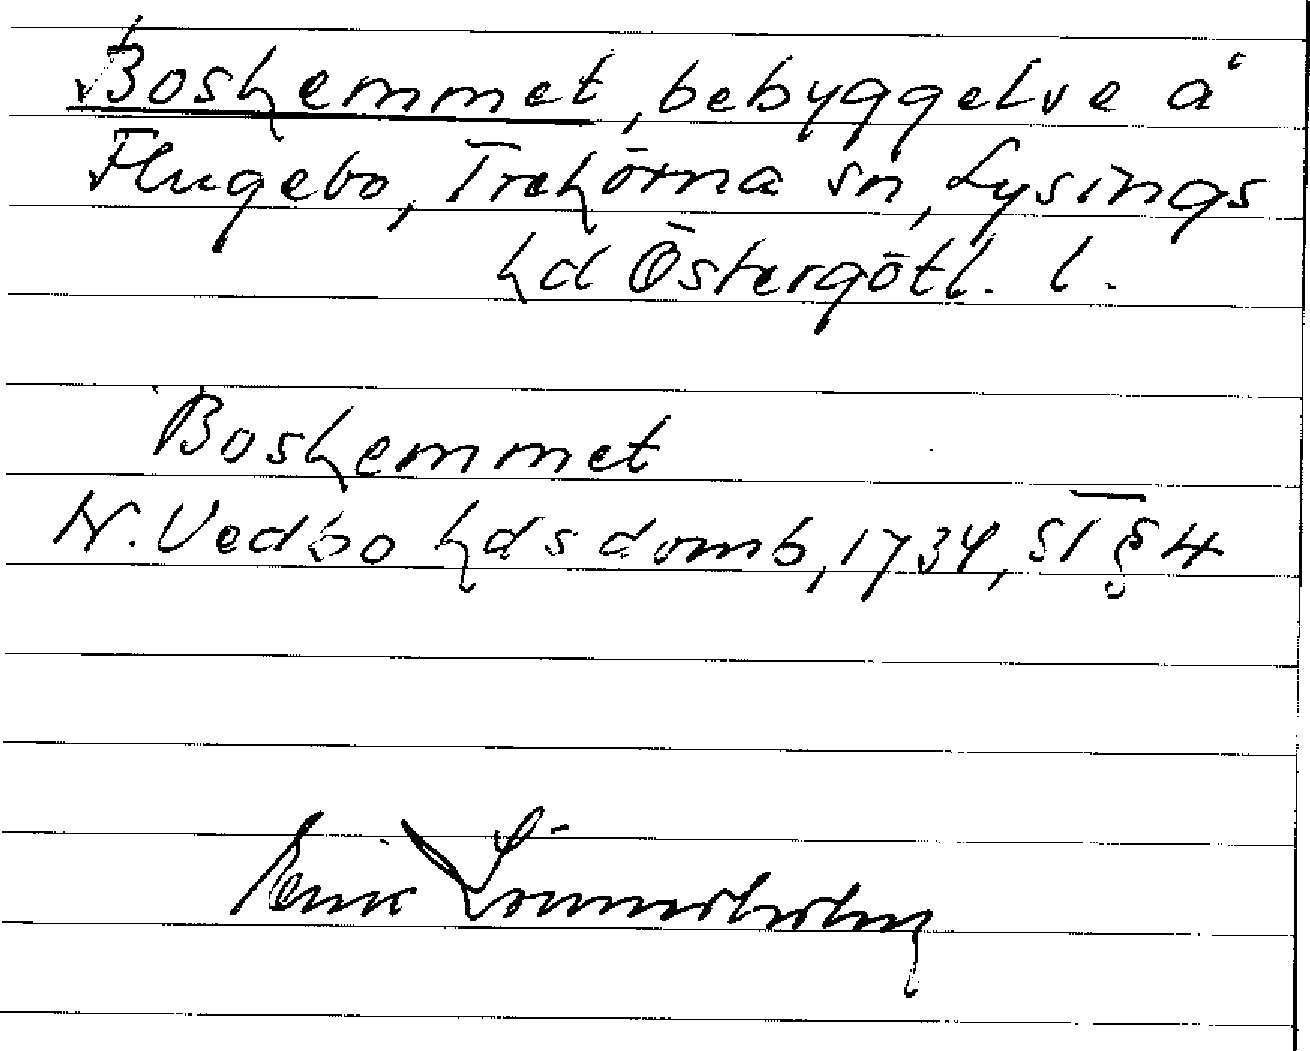 Boshemmet, bebyggelse å
Flugebo, Trehörna sn, Lysings
hd Östergötl. l.
Boshemmet
N. Vedbo hds domb, 1734, ST § 4
Erik Lönnerholm